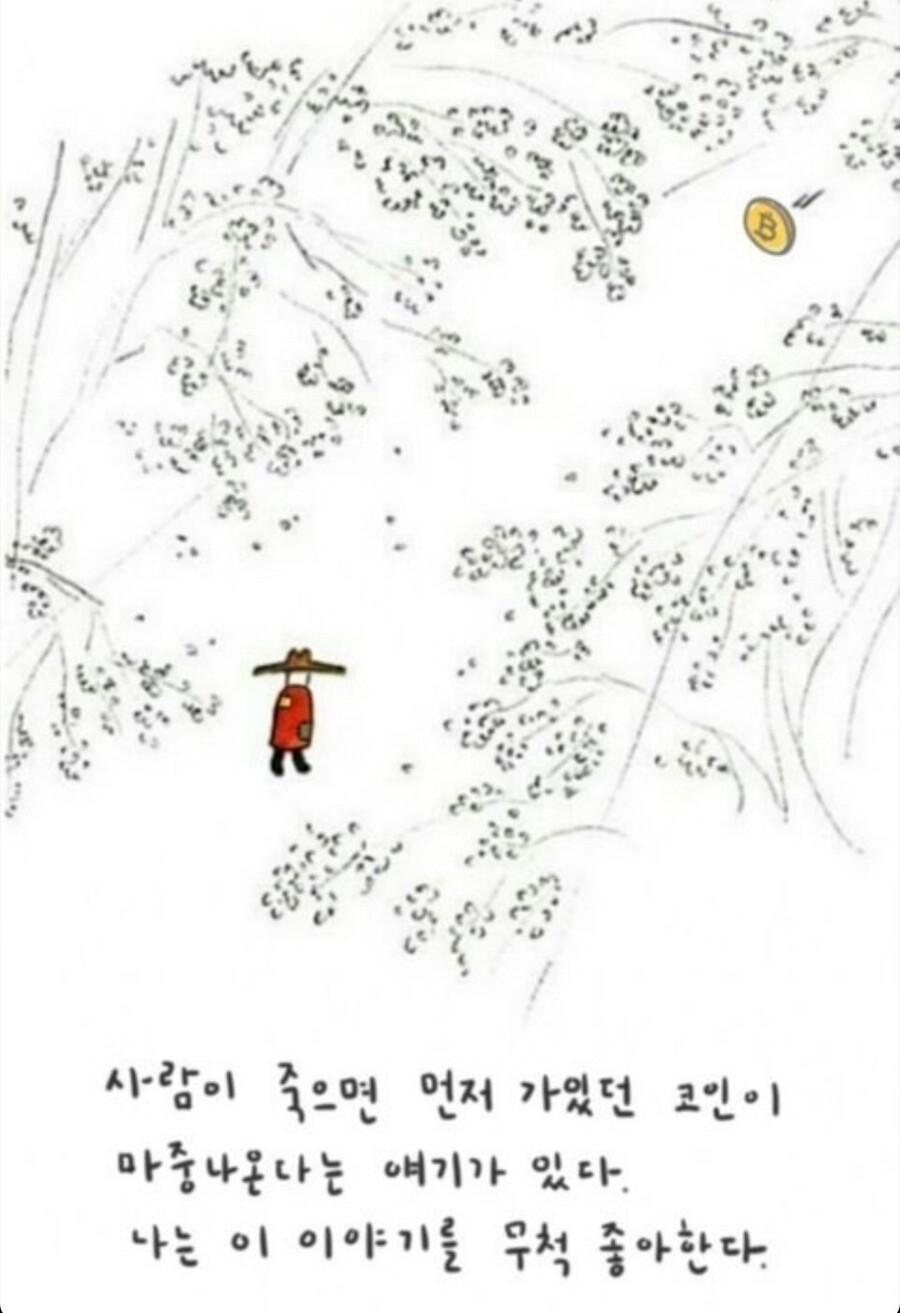 사람이 죽으면 먼저 가있던 코인이
마중나온다는 얘기가 있다.
나는 이 이야기를 무척 좋아한다.